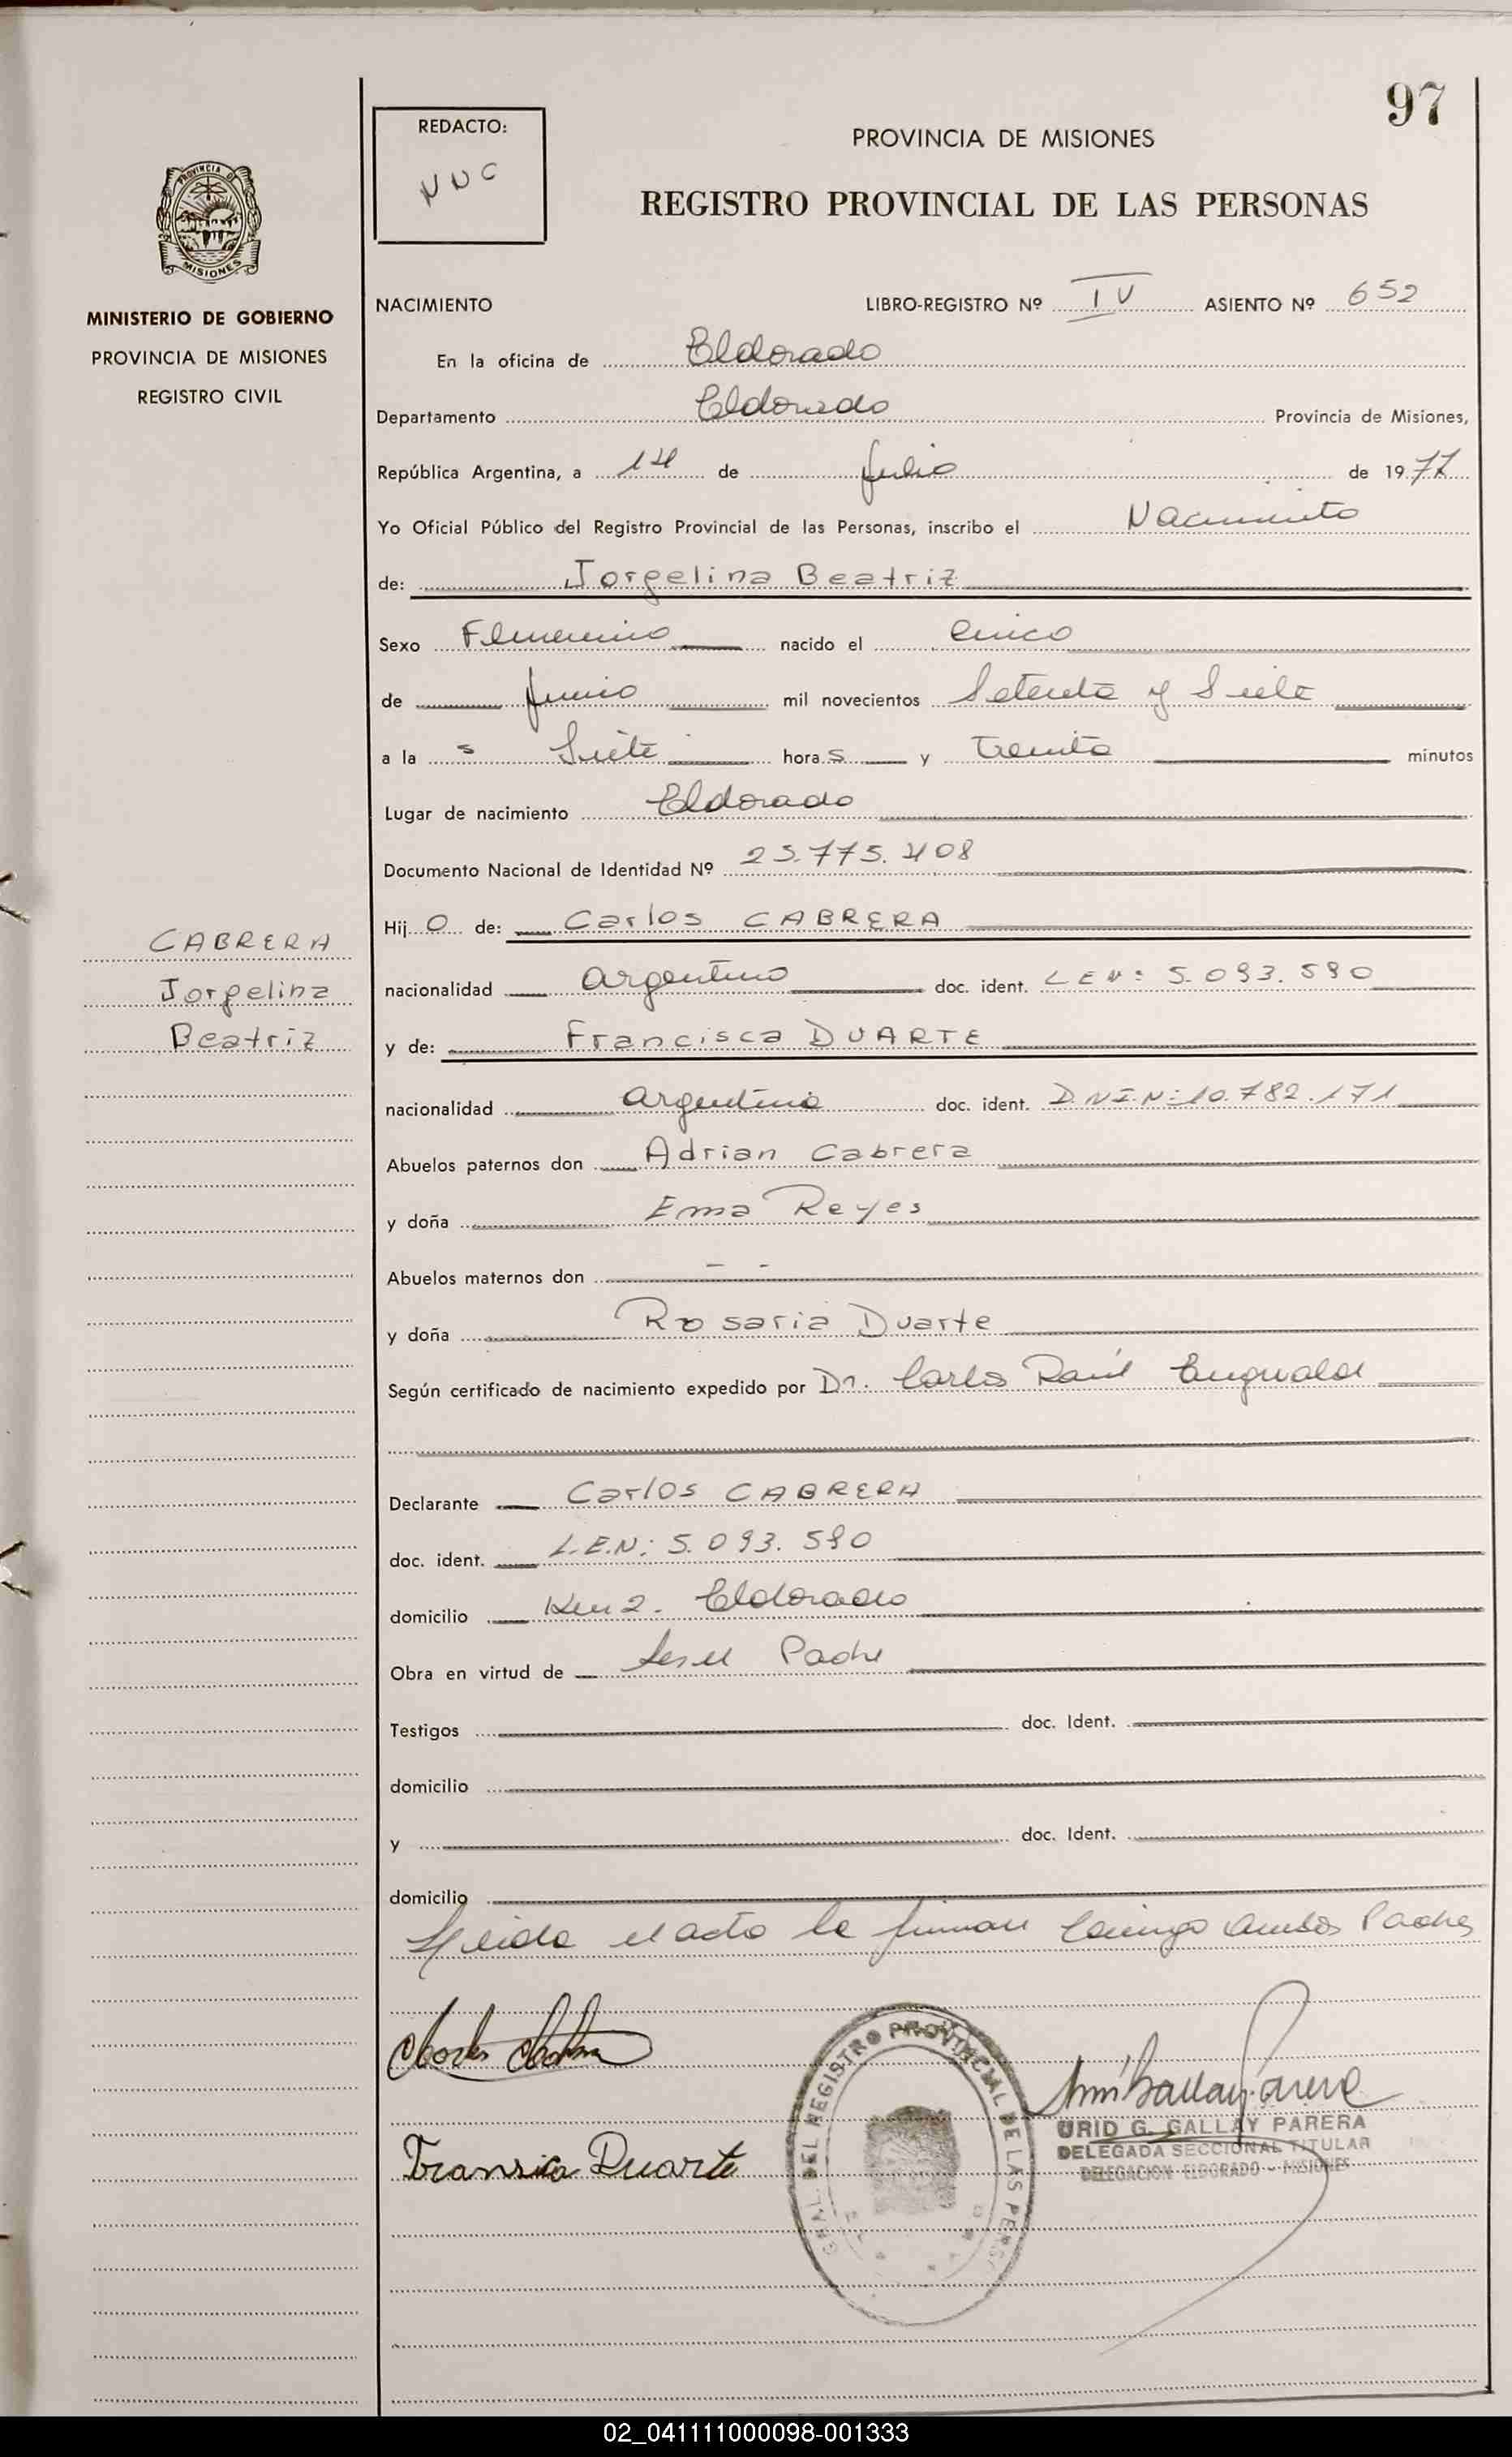 97
REDACTO:
NNC
PROVINCIA DE MISIONES
REGISTRO PROVINCIAL DE LAS PERSONAS
PROVINCIA DE
MISIONES
MINISTERIO DE GOBIERNO
PROVINCIA DE MISIONES
REGISTRO CIVIL
NACIMIENTO LIBRO-REGISTRO Nº IV ASIENTO Nº 652
En la oficina de Eldorado
Departamento Eldorado Provincia de Misiones,
República Argentina, a 14 de Julio de 1977
Yo Oficial Público del Registro Provincial de las Personas, inscribo el Nacimiento
de: Jorgelina Beatriz
Sexo Femenino nacido el Cinco
de Junio mil novecientos Setenta y Siete
a la s Siete hora s y Treinta minutos
Lugar de nacimiento Eldorado
Documento Nacional de Identidad Nº 25.775.408
Hij o de: Carlos CABRERA
nacionalidad argentino doc. ident. L E N: 5.093.590
y de: Francisca DUARTE
nacionalidad argentina doc. ident. D.N.I.N: 10.782.171
Abuelos paternos don Adrian Cabrera
y doña Ema Reyes
Abuelos maternos don - -
y doña Rosaria Duarte
Según certificado de nacimiento expedido por Dr. Carlos Raúl
Declarante Carlos CABRERA
doc. ident. L.E.N: 5.093.590
domicilio Km 2. Eldorado
Obra en virtud de ser el Padre
Testigos doc. Ident.
domicilio
y doc. Ident.
domicilio
Leida el acta la firman Conmigo ambos Padres
CABRERA
Jorgelina
Beatriz
Transica Duarte
GRAL. DEL REGISTRO PROVINCIAL DE LAS PERS
URID G. GALLAY PARERA
DELEGADA SECCIONAL TITULAR
DELEGACION ELDORADO - MISIONES
02_041111000098-001333